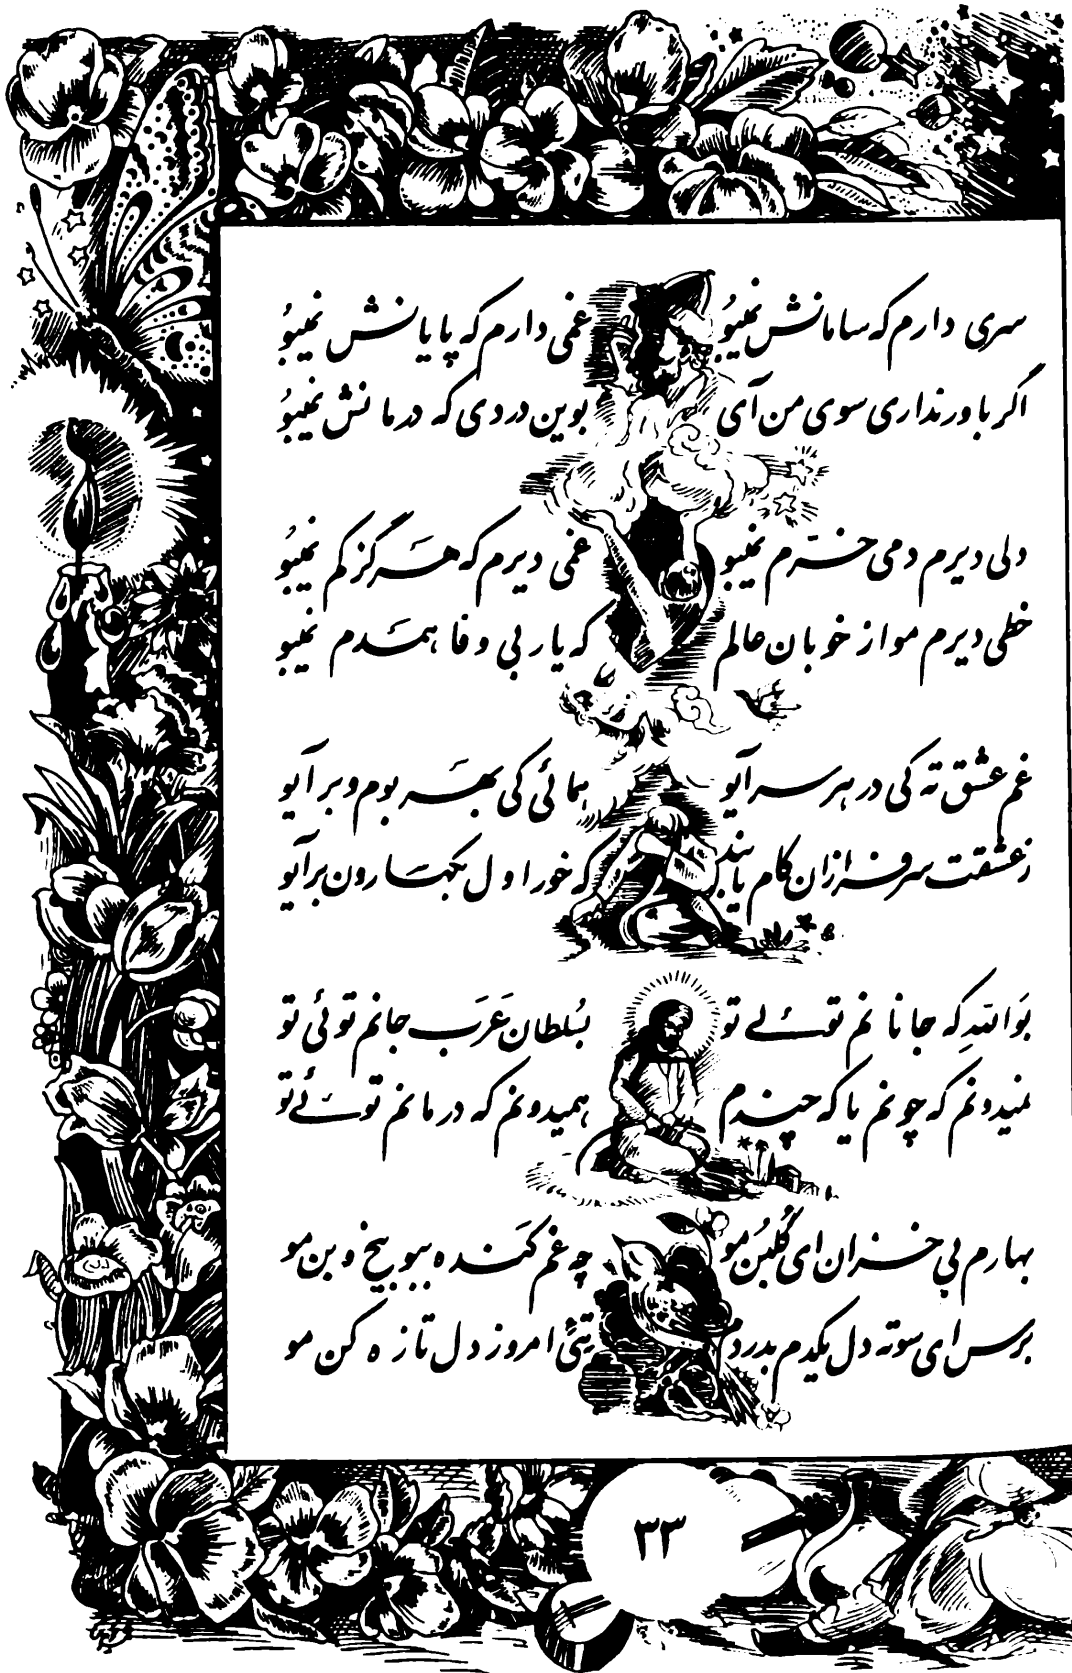 سری دارم که سامانش نمیبُو غمی دارم که پایانش نمیبُو
اگر باور نداری سوی من آی بوین دردی که درمانش نمیبُو
دلی دیرم دمی خرّم نمیبو غمی دیرم که هَرگز کم نمیبُو
خطی دیرم مو از خوبان عالم که یار بی وفا همدم نمیبو
غم عشق ته کی در هر سر آیو همائی کی بهَر بوم و بر آیو
زعشقت سرفرازان کام یابند که خور اول بکهسارون برآیو
بَواللّهِ که جانانم توئے لے تو بسُلطان عَرَب جانم توئی تو
نمیدونم که چونم یا که چندم همیدونم که درمانم توئے تو
بهارم بی خزان ای گُلبُن مو چه غم کَنده ببو بیخ و بن مو
برس ای سوته دل یکدم بدردم تئی امروز دل تازه کن مو
۳۳